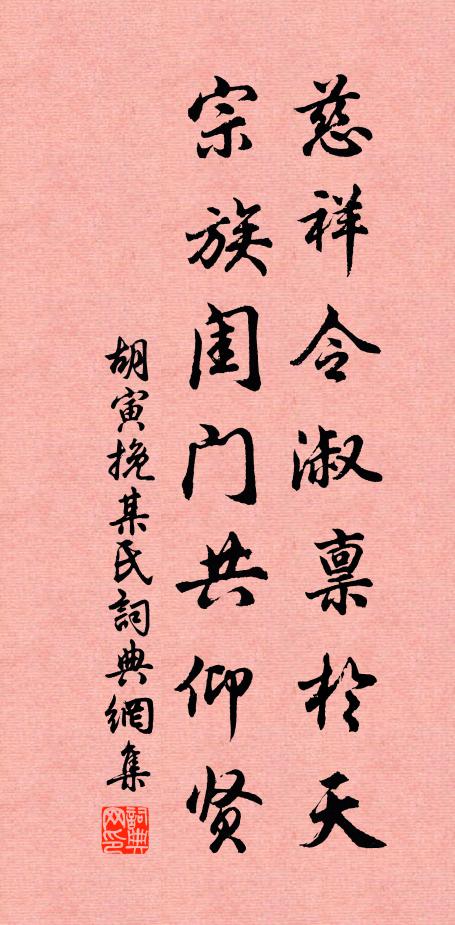 慈祥令淑禀於天
宗族闺门共仰贤
胡寅挽某氏詞典網集
詞典网印